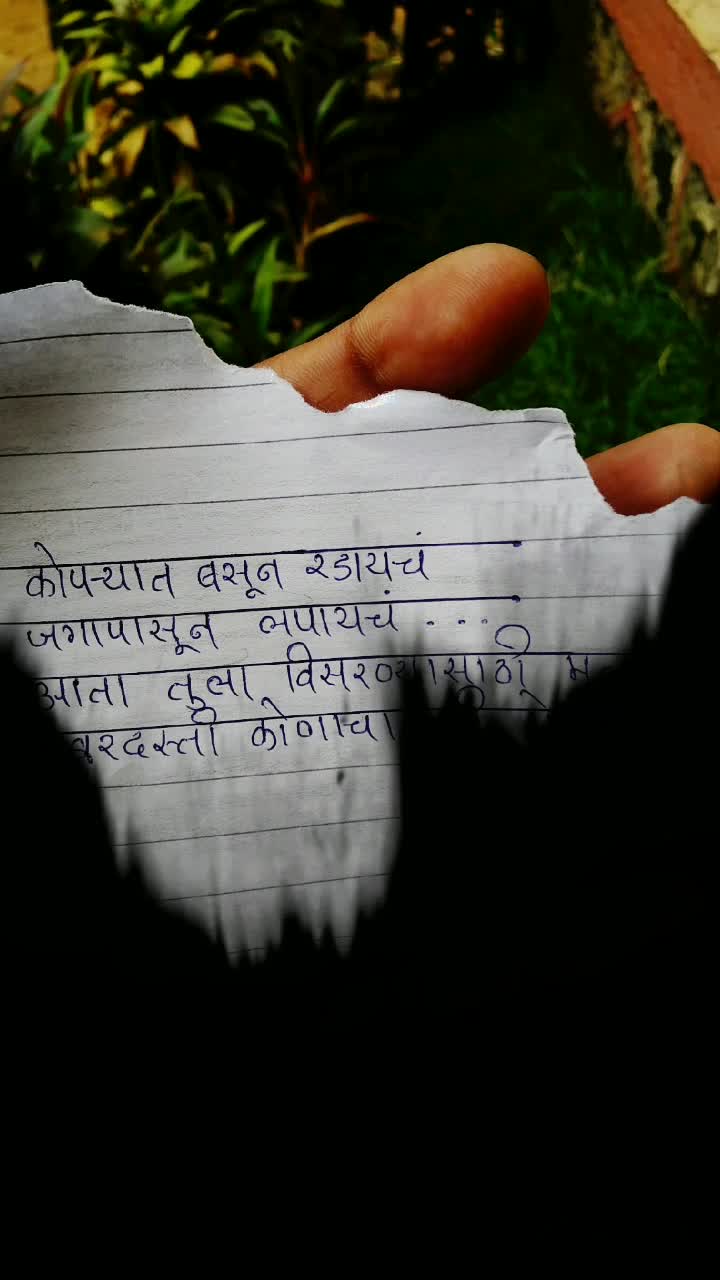 कोपऱ्यात बसून रडायचं
जगापासून लपायचं ...
आता तुला विसरण्यासाठी
कोणाचा